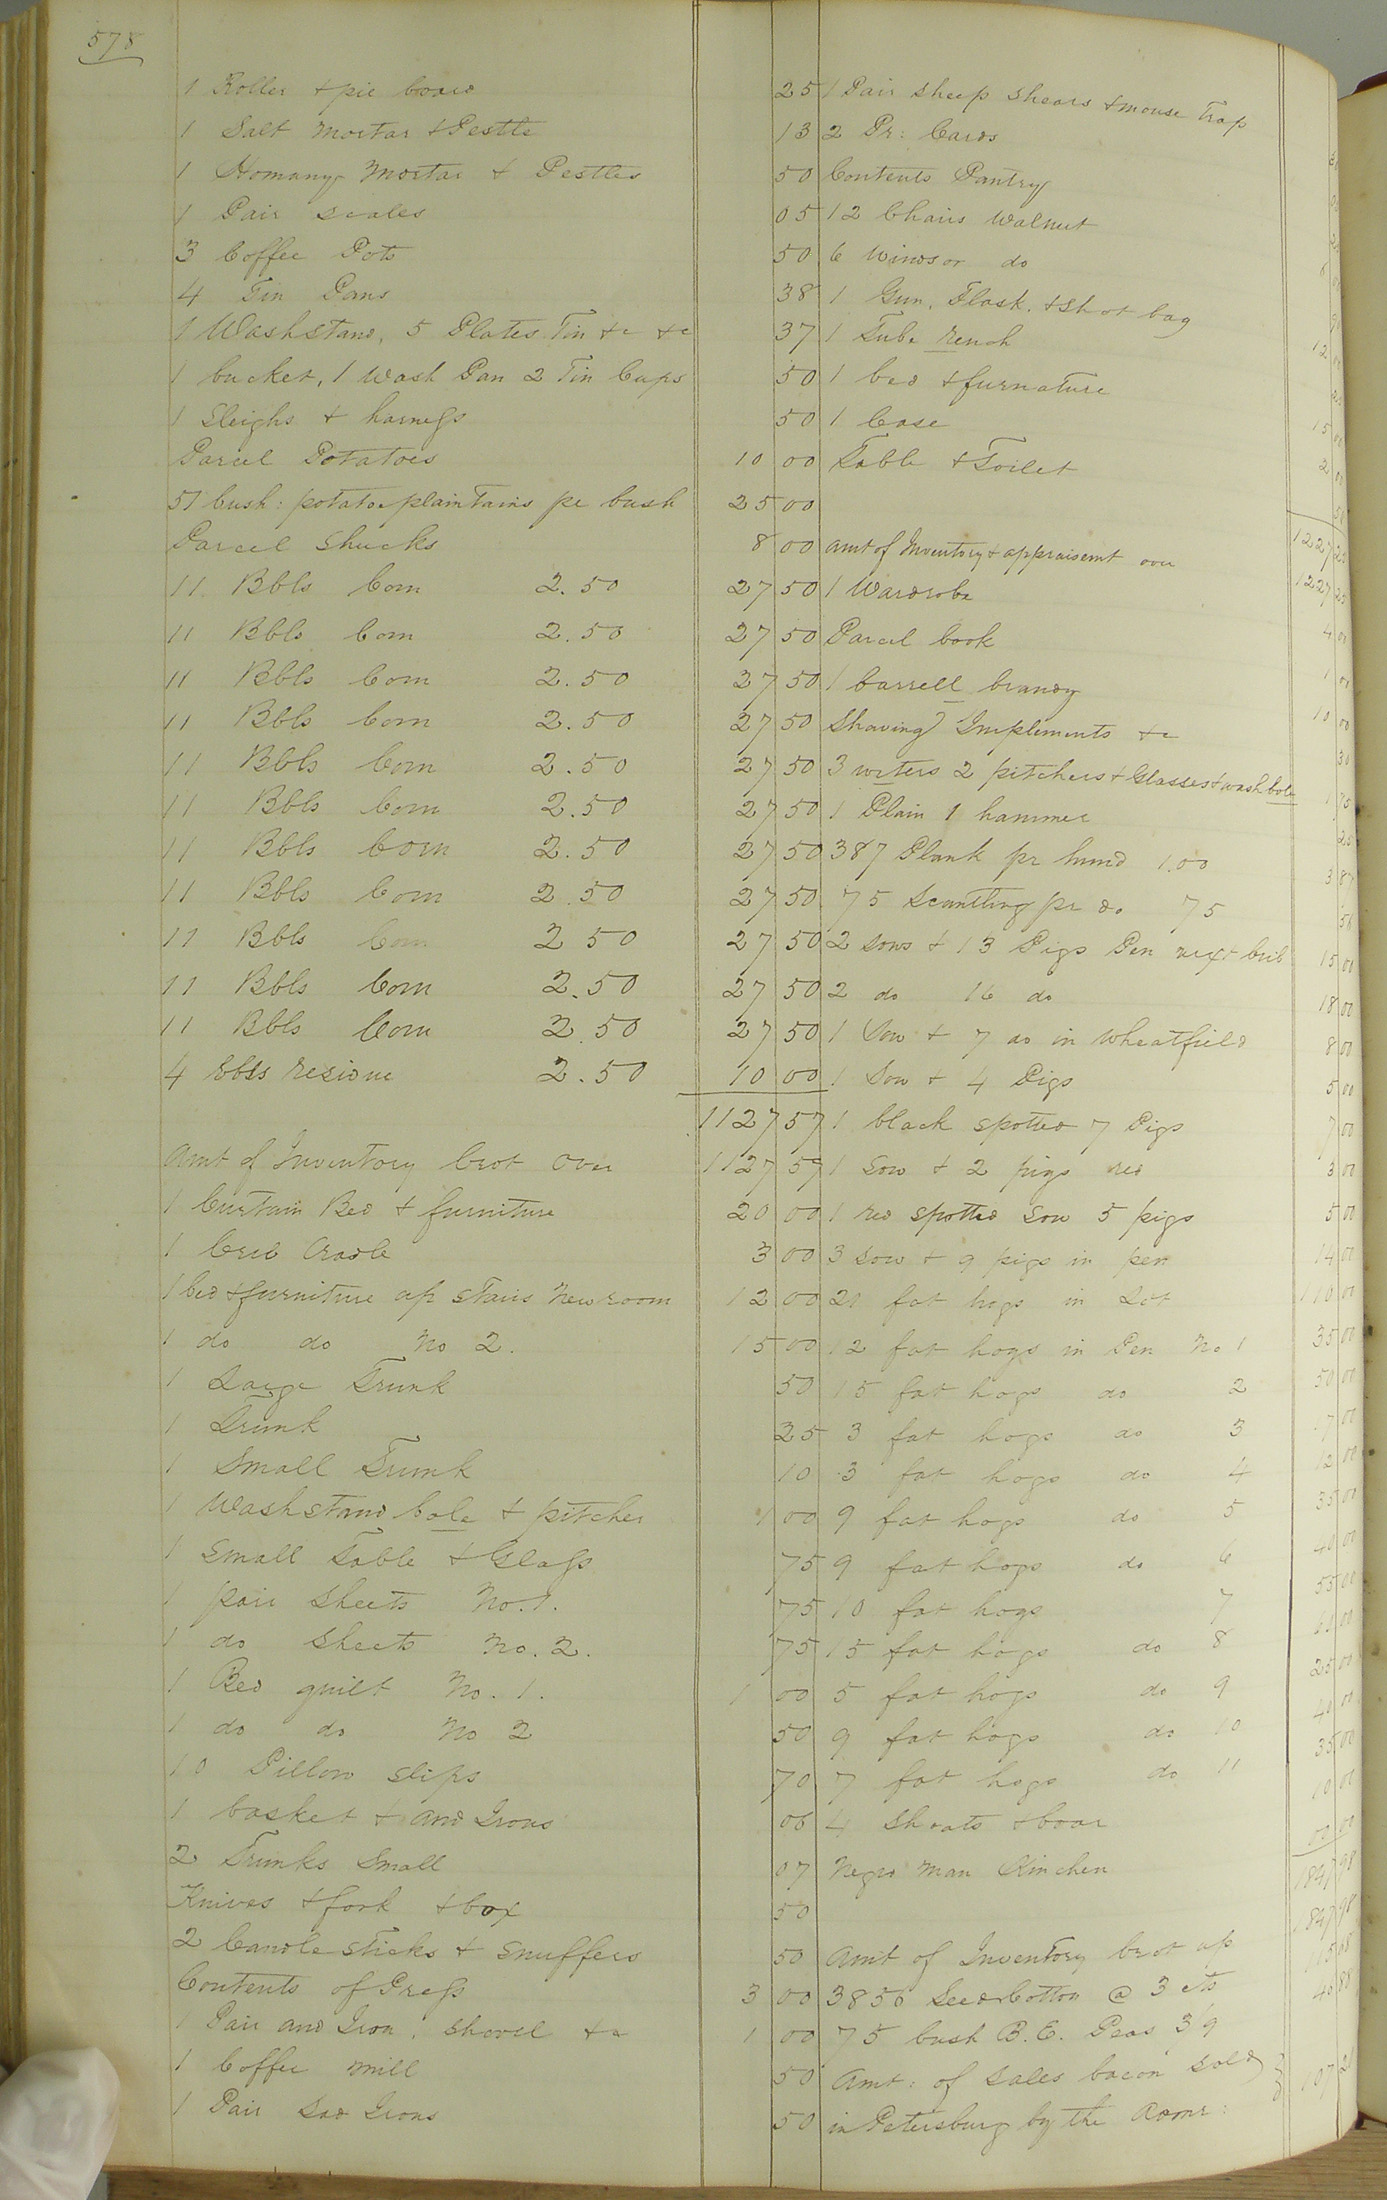 578
1 Roller + pie board 25
1 Salt mortar + Pestle 13
1 Homany mortar + Pestles 50
1 Pair scales 05
3 Coffee Pots 50
4 Tin Pans 38
1 Washstand, 5 Plates Tin +c +c 37
1 bucket, 1 Wash Pan 2 Tin Cups 50
1 Sleighs + harness 50
Parcel Potatoes 10 00
51 bush: potatoe plaintains pr bush 25 00
Parcel Shucks 8 00
11 Bbls Corn 2.50 27 50
11 Bbls Corn 2.50 27 50
11 Bbls Corn 2.50 27 50
11 Bbls Corn 2.50 27 50
11 Bbls Corn 2.50 27 50
11 Bbls Corn 2.50 27 50
11 Bbls Corn 2.50 27 50
11 Bbls Corn 2.50 27 50
11 Bbls Corn 2 50 27 50
11 Bbls Corn 2.50 27 50
11 Bbls Corn 2.50 27 50
4 bbls residue 2.50 10 00
1127 57
Amt of Inventory brot over 1127 57
1 Curtain Bed + furniture 20 00
1 Crib Cradle 3 00
1 bed + furniture up stairs New room 12 00
1 do do No 2. 15 00
1 Large Trunk 50
1 Trunk 25
1 Small Trunk 10
1 Washstand bole + pitcher 1 00
1 Small Table + Glass 75
1 pair Sheets No. 1. 75
1 do Sheets No. 2. 75
1 Bed quilt No. 1. 1 00
1 do do No 2 50
10 Pillow slips 70
1 basket + and Irons 06
2 Trunks Small 07
Knives + fork + box 50
2 Candle sticks + Snuffers 50
Contents of Press 3 00
1 Pair and Iron, shovel +c 1 00
1 Coffee mill 50
1 Pair Sad Irons 50
1 Pair sheep shears + mouse Trap
2 Pr: Cards
Contents Pantry
12 Chairs Walnut
6 Windsor do
1 Gun, Flask, + Shot bag
1 Tube rench
1 bed + furnature
1 Case
Table + Toilet
Amt of Inventory + appraisemt over 1227 25
1 Wardrobe
Parcel book 4 00
1 barrell brandy 1 00
Shaving Implements +c 10 00
3 wrters 2 pitchers + Glasses + wash bole
1 Plain 1 hammer
387 Plank pr hund 1.00 3 87
75 Scantling pr do 75
2 sows + 13 Pigs Pen next Crib 15 00
2 do 16 do 18 00
1 Sow + 7 do in wheatfield 8 00
1 Sow + 4 Pigs 5 00
1 black spotted 7 Pigs 7 00
1 Sow + 2 pigs red 3 00
1 red spotted Sow 5 pigs 5 00
3 Sow + 9 pigs in pen 14 00
21 fat hogs in Lot 110 00
12 fat hogs in Pen No 1 35 00
15 fat hogs do 2 50 00
3 fat hogs do 3
3 fat hogs do 4 12 00
9 fat hogs do 5 35 00
9 fat hogs do 6 40 00
10 fat hogs 7 55 00
15 fat hogs do 8
5 fat hogs do 9 25 00
9 fat hogs do 10 40 00
7 fat hogs do 11 35 00
4 Shoats + boar 10 00
Negro man Kinchen
1847 98
Amt of Inventory brot up 1847 98
3856 Seed Cotton @ 3 cts
75 bush B. E. Peas 3/9
Amt: of sales bacon sold
in Petersburg by the Admr: